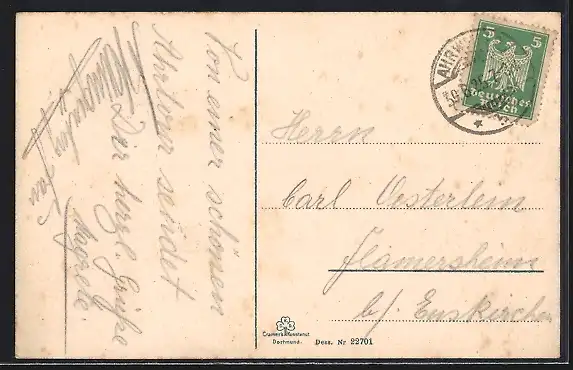 Von einer schönen
Ahrtour sendet
Dir herzl. Grüße
Herrn
Carl Oesterlein
Flamersheim
b/. Euskirchen
5 5
Deutsches
Reich
Cramers Kunstanst.
Dortmund.
Dess. Nr 22701